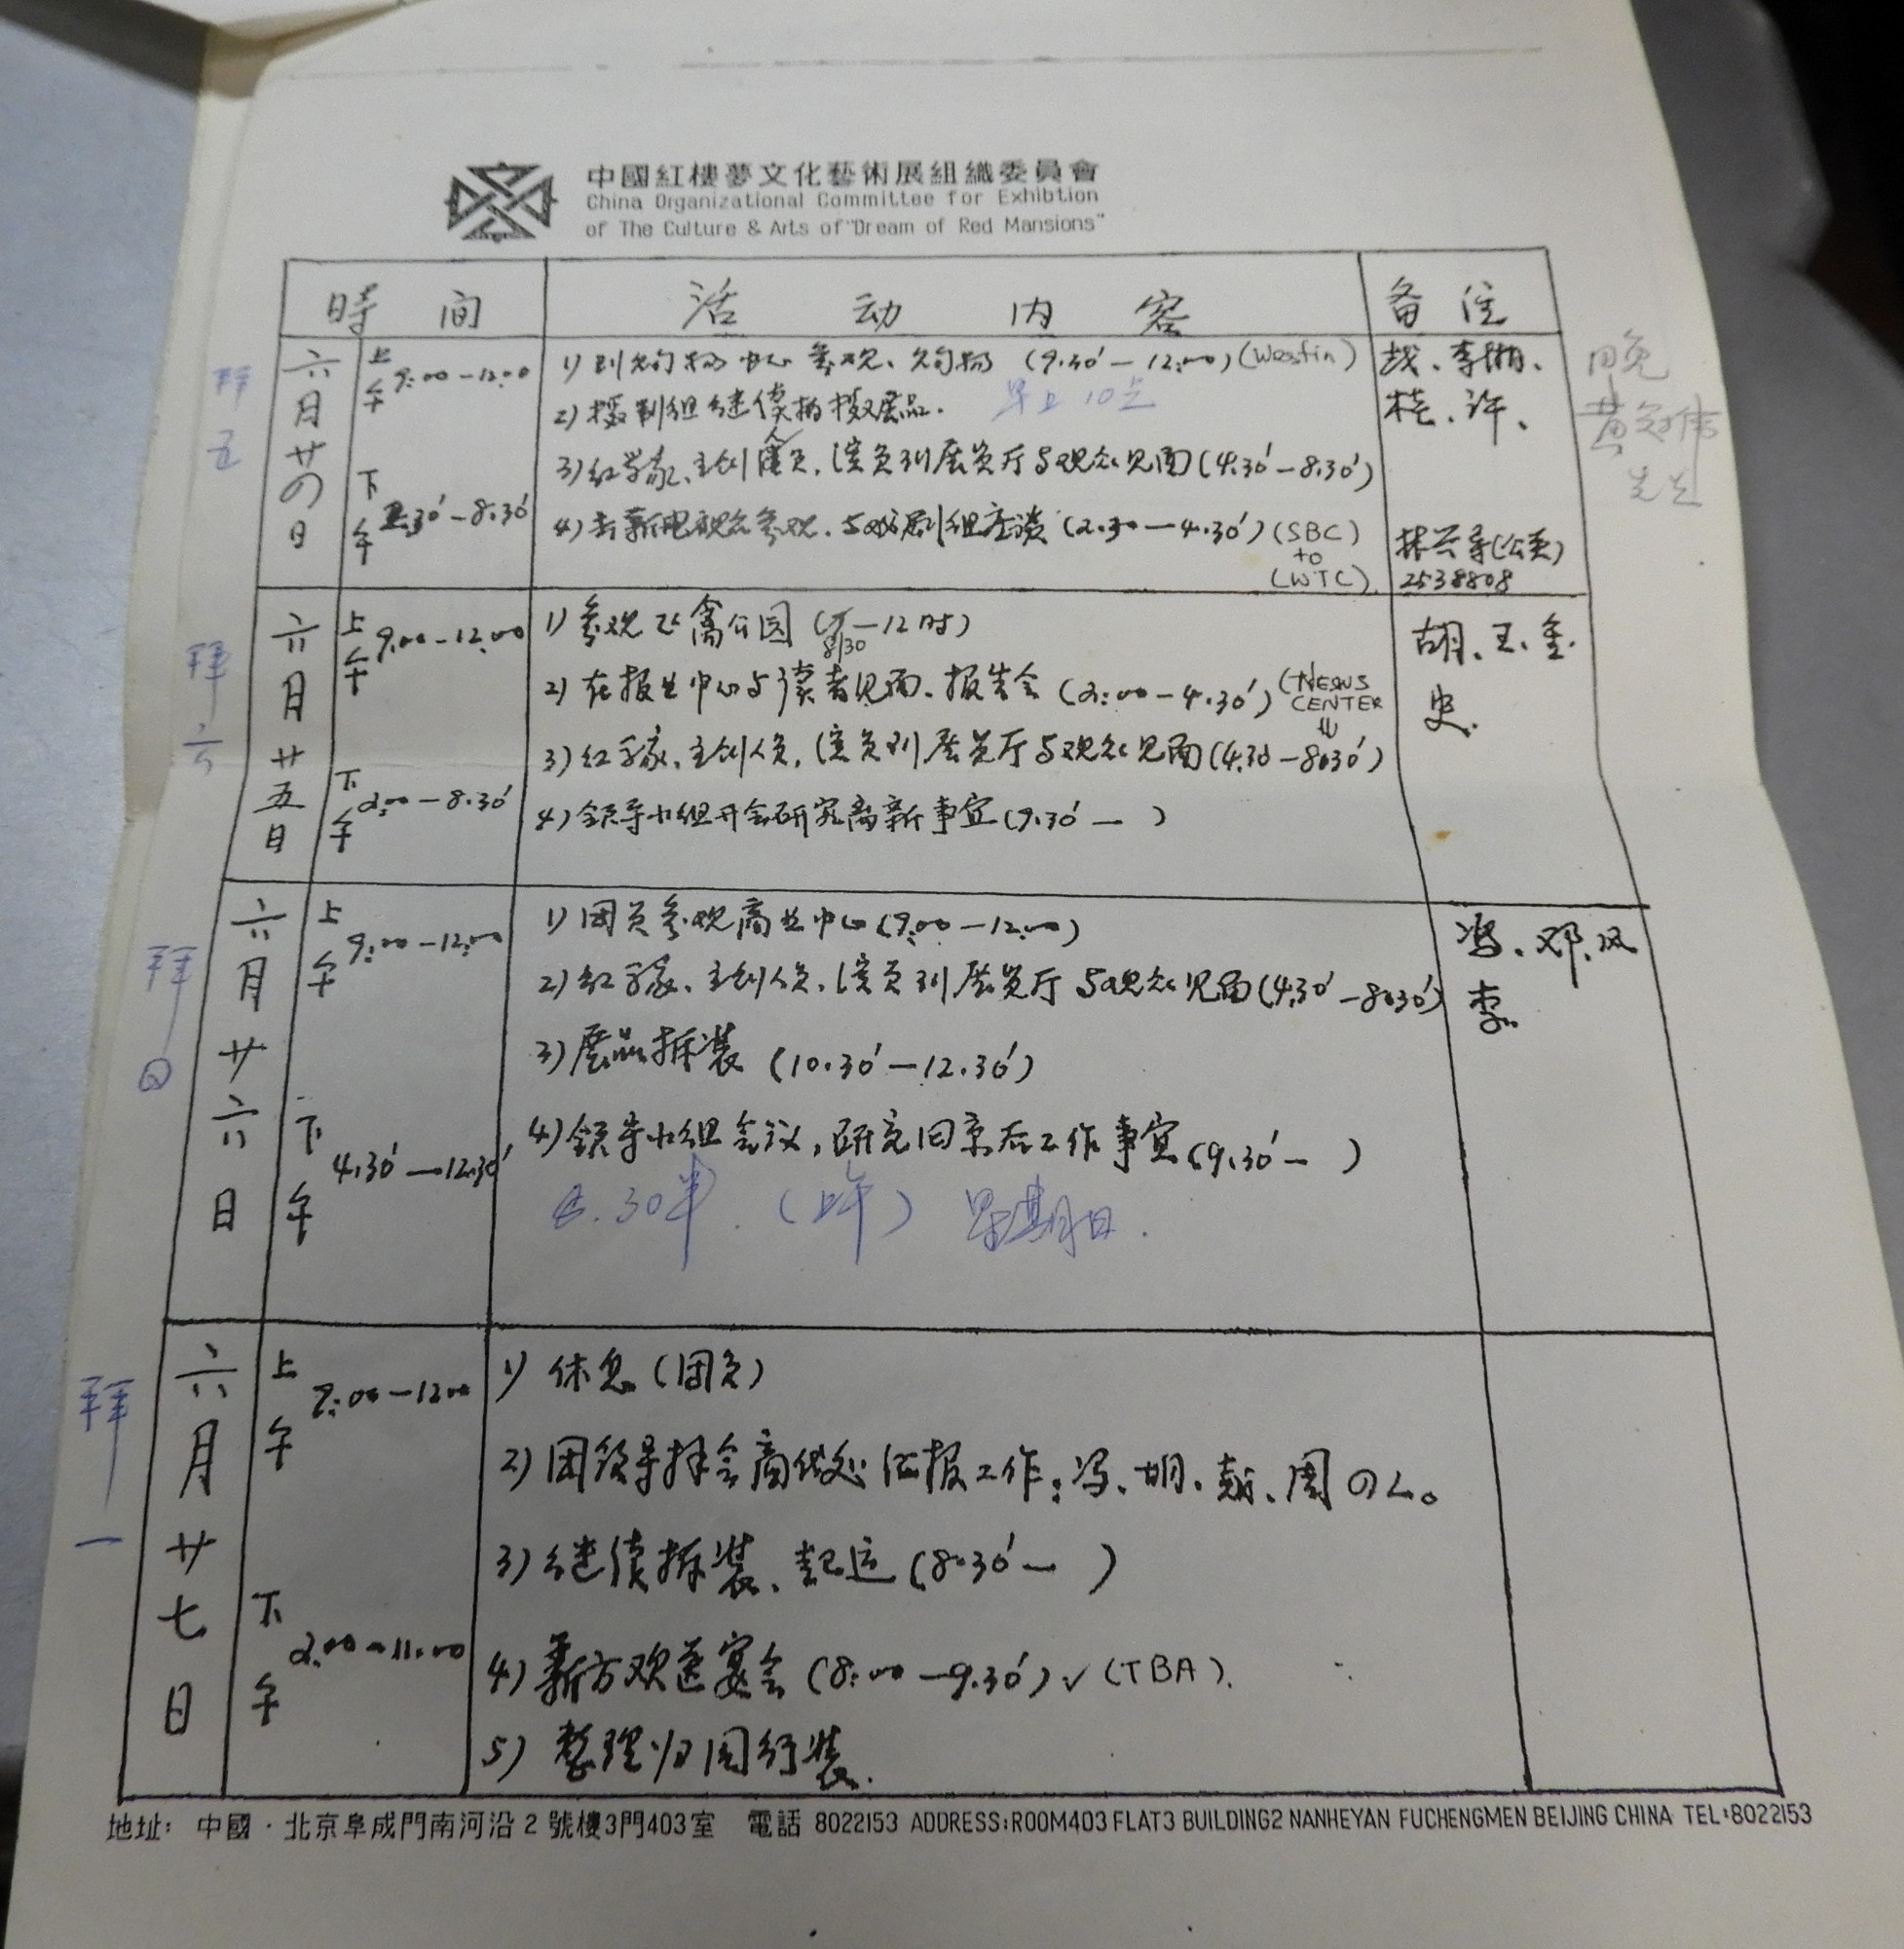 中國紅樓夢文化藝術展組織委員會
China Organizational Committee for Exhibtion
of The Culture & Arts of "Dream of Red Mansions"
時 间 活 动 内 容 备 注
拜五
六月廿四日
上午 9:00—12:00
下午 2.30′—8.30′
1) 到购物中心参观、购物 (9.30′—12:00) (Westin)
早上10点
2) 摄制组继续拍摄展品.
3) 红学家、主创人员, 演员到展览厅与观众见面 (4.30′—8.30′)
4) 去新电视台参观. 与戏剧组座谈 (2.30—4.30′) (SBC)
to
(WTC)
李
许、
2538808
晚
黄
先生
拜六
六月廿五日
上午 9:00—12:00
下午 2:00—8.30′
1) 参观飞禽公园 ( —12时)
8/30
2) 在报业中心与读者见面、报告会 (2:00—4.30′) (NEWS
CENTER
⇓
3) 红学家、主创人员, 演员到展览厅与观众见面 (4.30—8.30′)
4) 领导小组开会研究离新事宜 (9.30′— )
胡、王、金.
史.
拜日
六月廿六日
上午 9:00—12:00
下午 4.30′—12.30′
1) 团员参观商业中心 (9:00—12:00)
2) 红学家、主创人员, 演员到展览厅与观众见面 (4.30′—8.30′)
3) 展品拆装 (10.30′—12.30′)
4) 领导小组会议, 研究回京后工作事宜 (9.30′— )
.30半. (上午) 星期日.
冯、邓、
李
拜一
六月廿七日
上午 9:00—12:00
下午 2:00—11:00
1) 休息 (团员)
2) 团领导拜会商代处汇报工作: 冯、胡、 、周四人。
3) 继续拆装、起运 (8.30′— )
4) 新方欢送宴会 (8:00—9.30′) √ (TBA).
5) 整理归国行装.
地址: 中國·北京阜成門南河沿2號樓3門403室 電話 8022153 ADDRESS:ROOM403 FLAT3 BUILDING2 NANHEYAN FUCHENGMEN BEIJING CHINA TEL:8022153